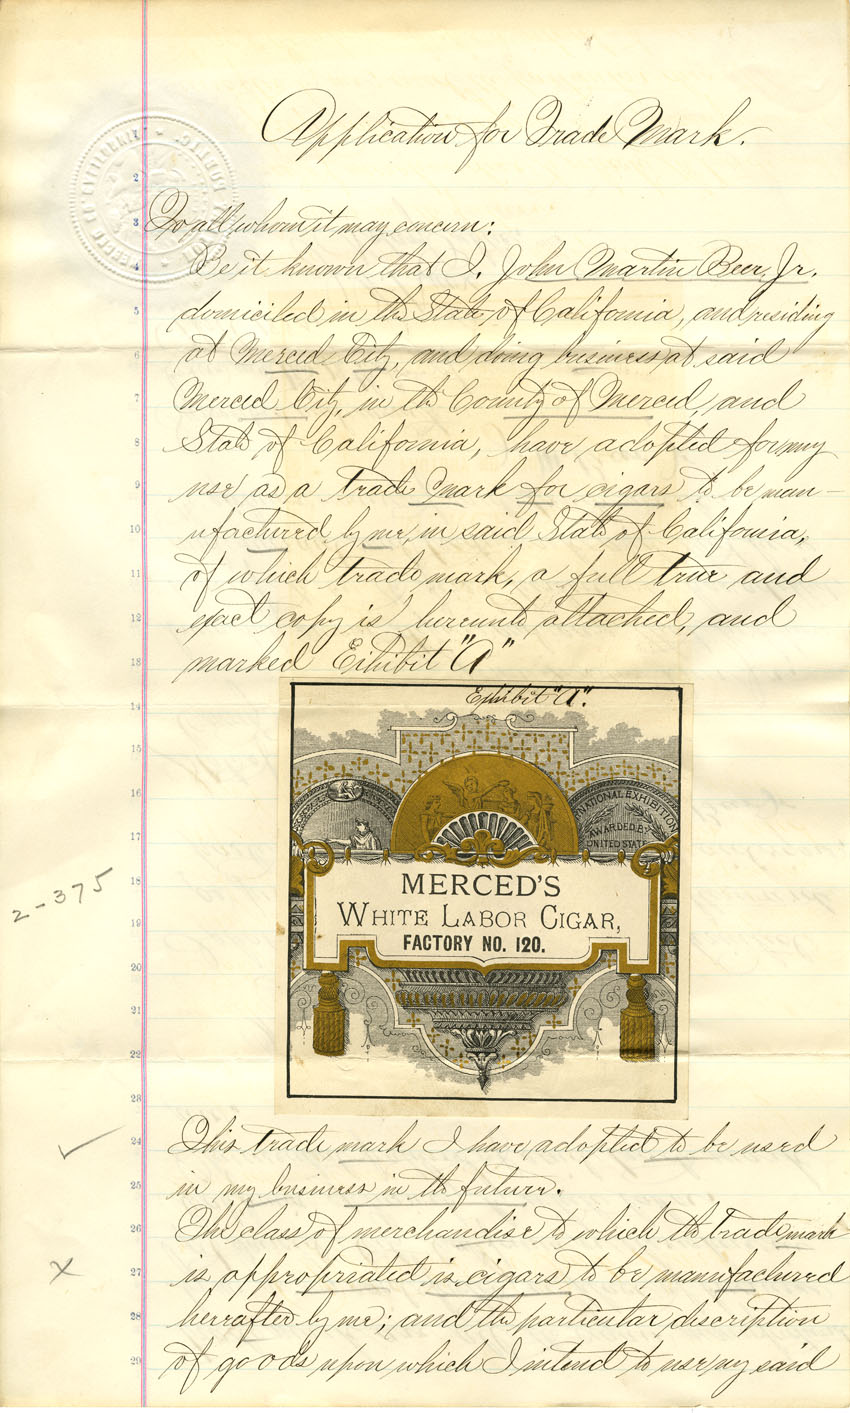 Application for Trade Mark.
2
3 To all whom it may concern:
4 Be it known that I, John Martin Beer, Jr.
5 domiciled in the State of California, and residing
6 at Merced City, and doing business at said
7 Merced City, in the County of Merced, and
8 State of California, have adopted for my
9 use as a trade mark for cigars to be man-
10 ufactured by me, in said State of California,
11 of which trade mark, a full true and
12 exact copy is hereunto attached, and
13 marked Exhibit "A"
14 Exhibit "A".
15
16
NATIONAL EXHIBITION
17 AWARDED BY
UNITED STATE
18 MERCED'S
2-375
19 WHITE LABOR CIGAR,
FACTORY NO. 120.
20
21
22
23
24 This trade mark I have adopted to be used
25 in my business in the future.
26 The class of merchandise to which the trade mark
27 is appropriated is cigars to be manufactured
28 hereafter by me; and the particular description
29 of goods upon which I intend to use my said